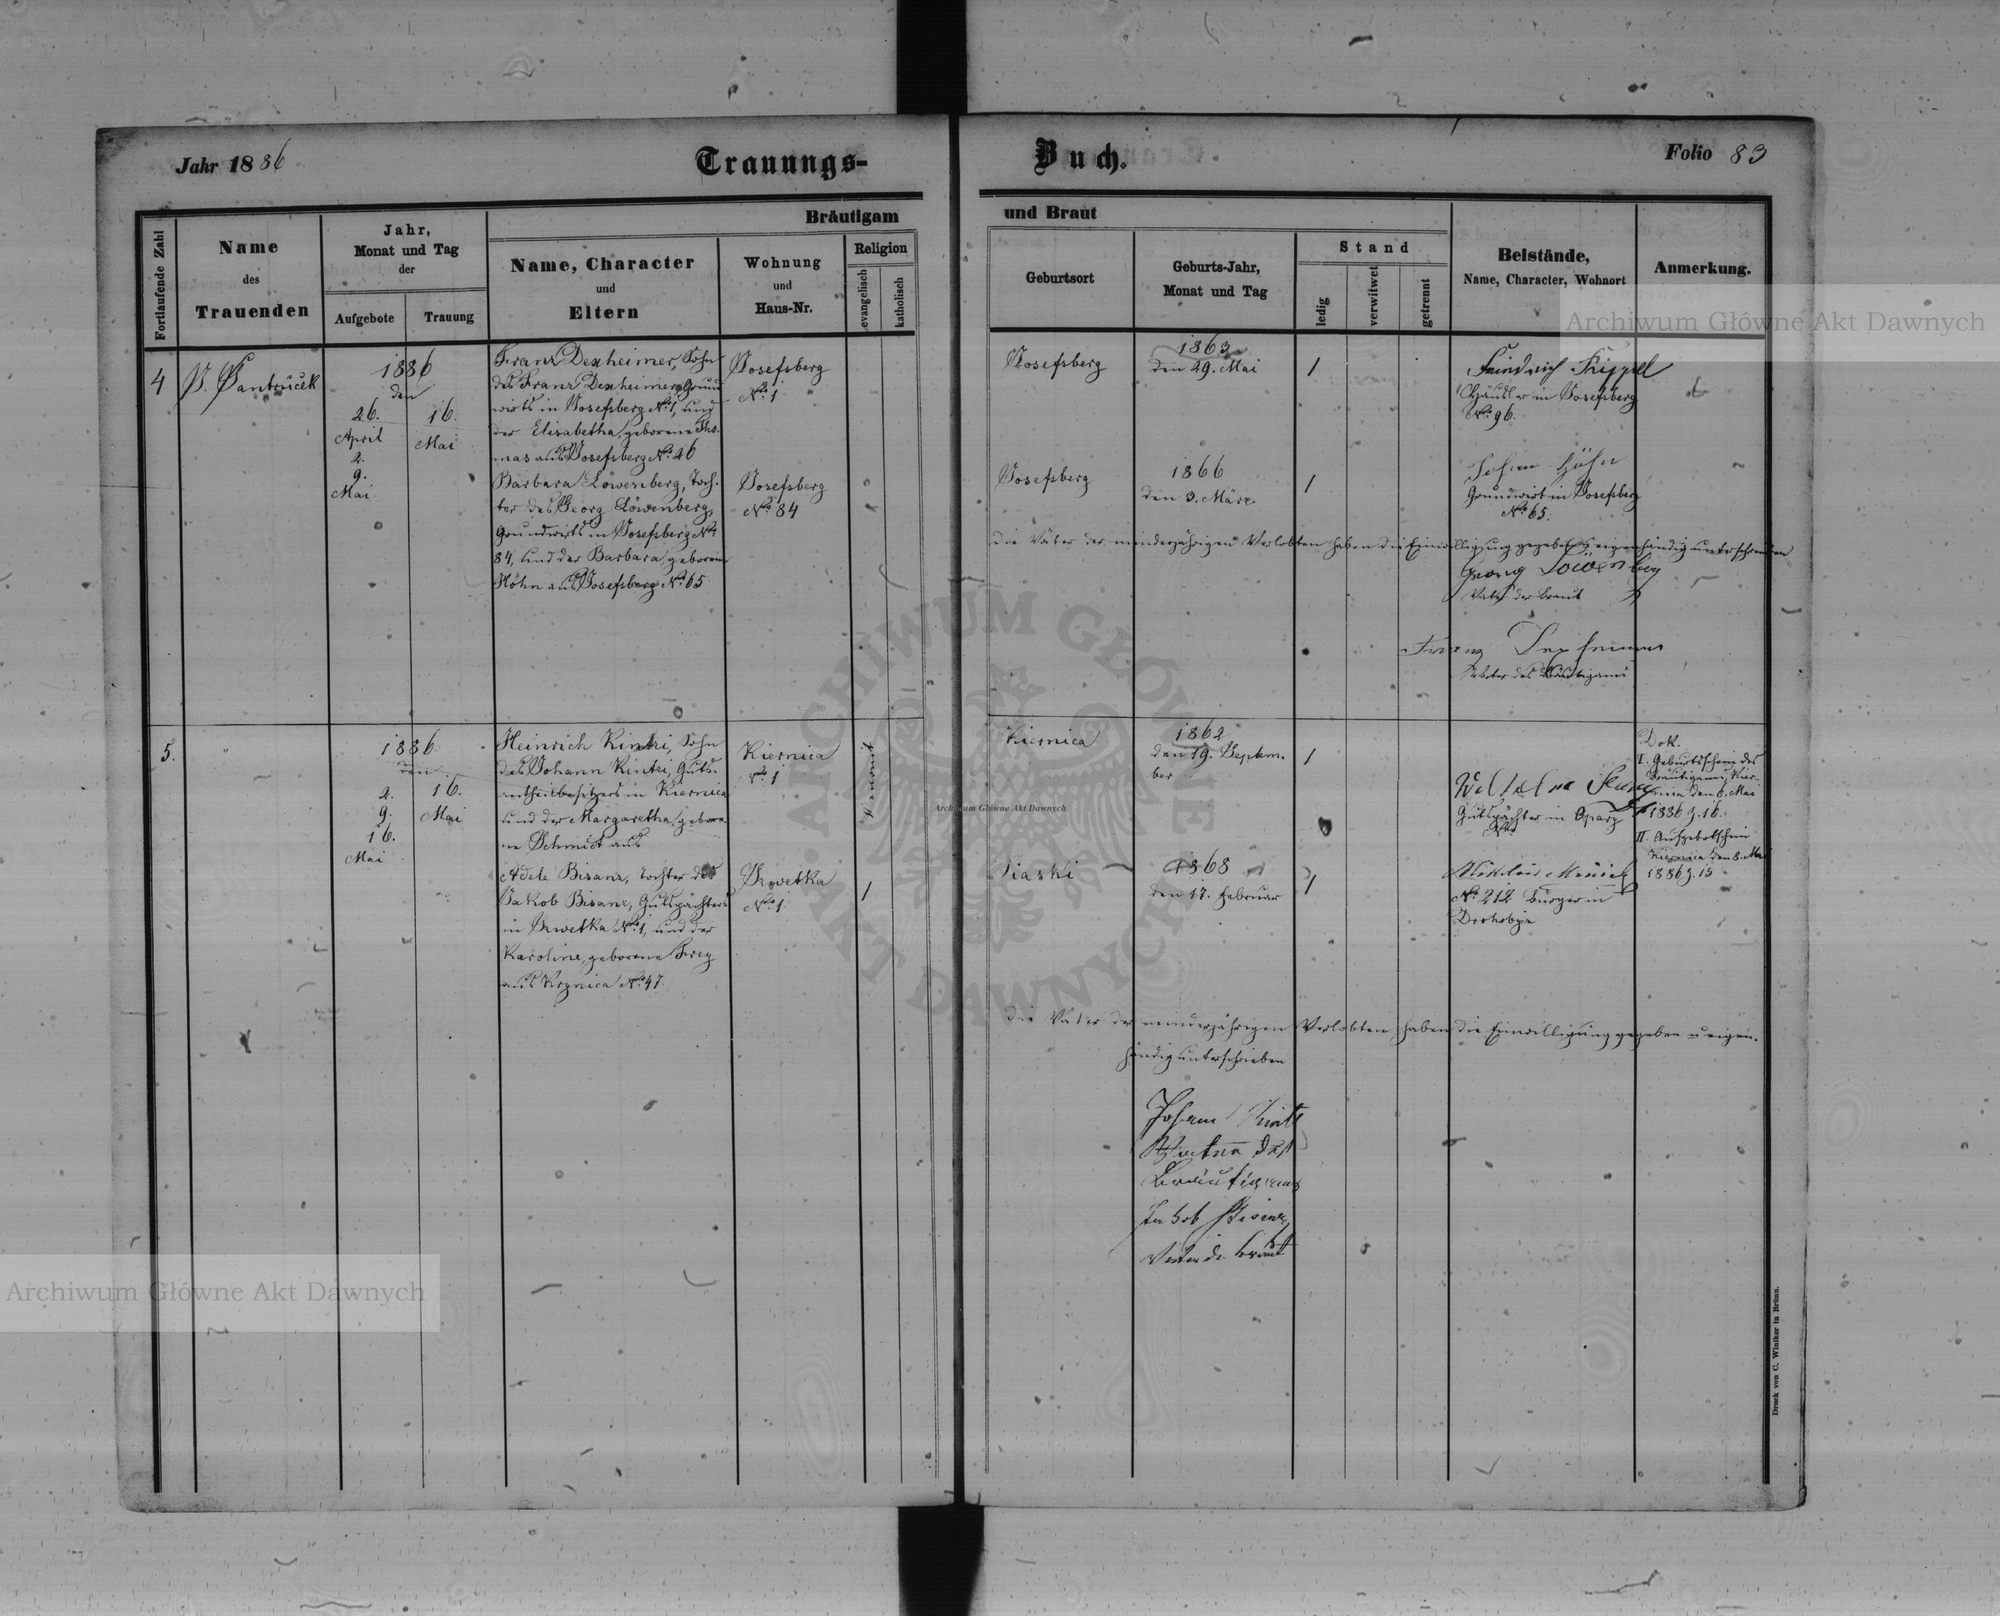 Jahr 1886
Trauungs-
Buch.
Folio 83
Fortlaufende Zahl
Name
des
Trauenden
Jahr,
Monat und Tag
der
Aufgebote
Trauung
Bräutigam
Name, Character
und
Eltern
Wohnung
und
Haus-Nr.
Religion
evangelisch
katholisch
und Braut
Geburtsort
Geburts-Jahr,
Monat und Tag
Stand
ledig
verwitwet
getrennt
Beistände,
Name, Character, Wohnort
Anmerkung.
4
1886
den
26.
April
2.
9.
Mai
16.
Mai
Franz Dexheimer, Sohn
des Franz Dexheimer, Grund
wirts in Josefsberg No. 1, und
der Elisabetha, geborene Tho-
mas aus Josefsberg No. 26
Josefsberg
No. 1
Josefsberg
1863
den 29. Mai
1
Häusler in Josefsberg
No. 96.
Barbara Löwenberg, Toch-
ter des Georg Löwenberg,
Grundwirts in Josefsberg No.
84, und der Barbara, geborene
Höhn aus Josefsberg No. 65
Josefsberg
No. 84
Josefsberg
1866
den 3. März
1
Johann Höhn
Grundwirt in Josefsberg
No. 65.
Die Väter der minderjährigen Verlobten haben die Einwilligung gegeben u. eigenhändig unterschrieben
Georg Löwenberg
Vater der Braut
Franz Dexheimer
Vater des Bräutigams
5.
"
1886
den
2.
9.
16.
Mai
16.
Mai
Heinrich Kintzi, Sohn
des Johann Kintzi, Guts-
antheilbesitzers in Kiernica
und der Margaretha, gebore-
ne Schmidt aus
Kiernica
No. 1
Kiernica
1862
den 19. Septem-
ber
1
Gutspächter in
Dok.
I. Geburtsschein des
Bräutigams, Kier-
nica den 6. Mai
1886 z. 16.
II. Aufgebotschein
Kiernica den 8. Mai
1886 z. 15
Adele Bisanz, Tochter des
Jakob Bisanz, Gutspächters
in No. 1, und der
Karoline, geborene Frey
aus Krynica No. 47.
No. 1
1
Piaski
1868
den 17. Februar
1
No. 212 Bürger in
Drohobycz
Die Väter der minderjährigen Verlobten haben die Einwilligung gegeben u. eigen-
händig unterschrieben
Johann Kintzi
Vater des
Bräutigams
Jakob Bisanz
Vater der Braut
Druck von C. Winiker in Brünn.
Archiwum Główne Akt Dawnych
Archiwum Główne Akt Dawnych
Archiwum Główne Akt Dawnych
ARCHIWUM GŁÓWNE AKT DAWNYCH